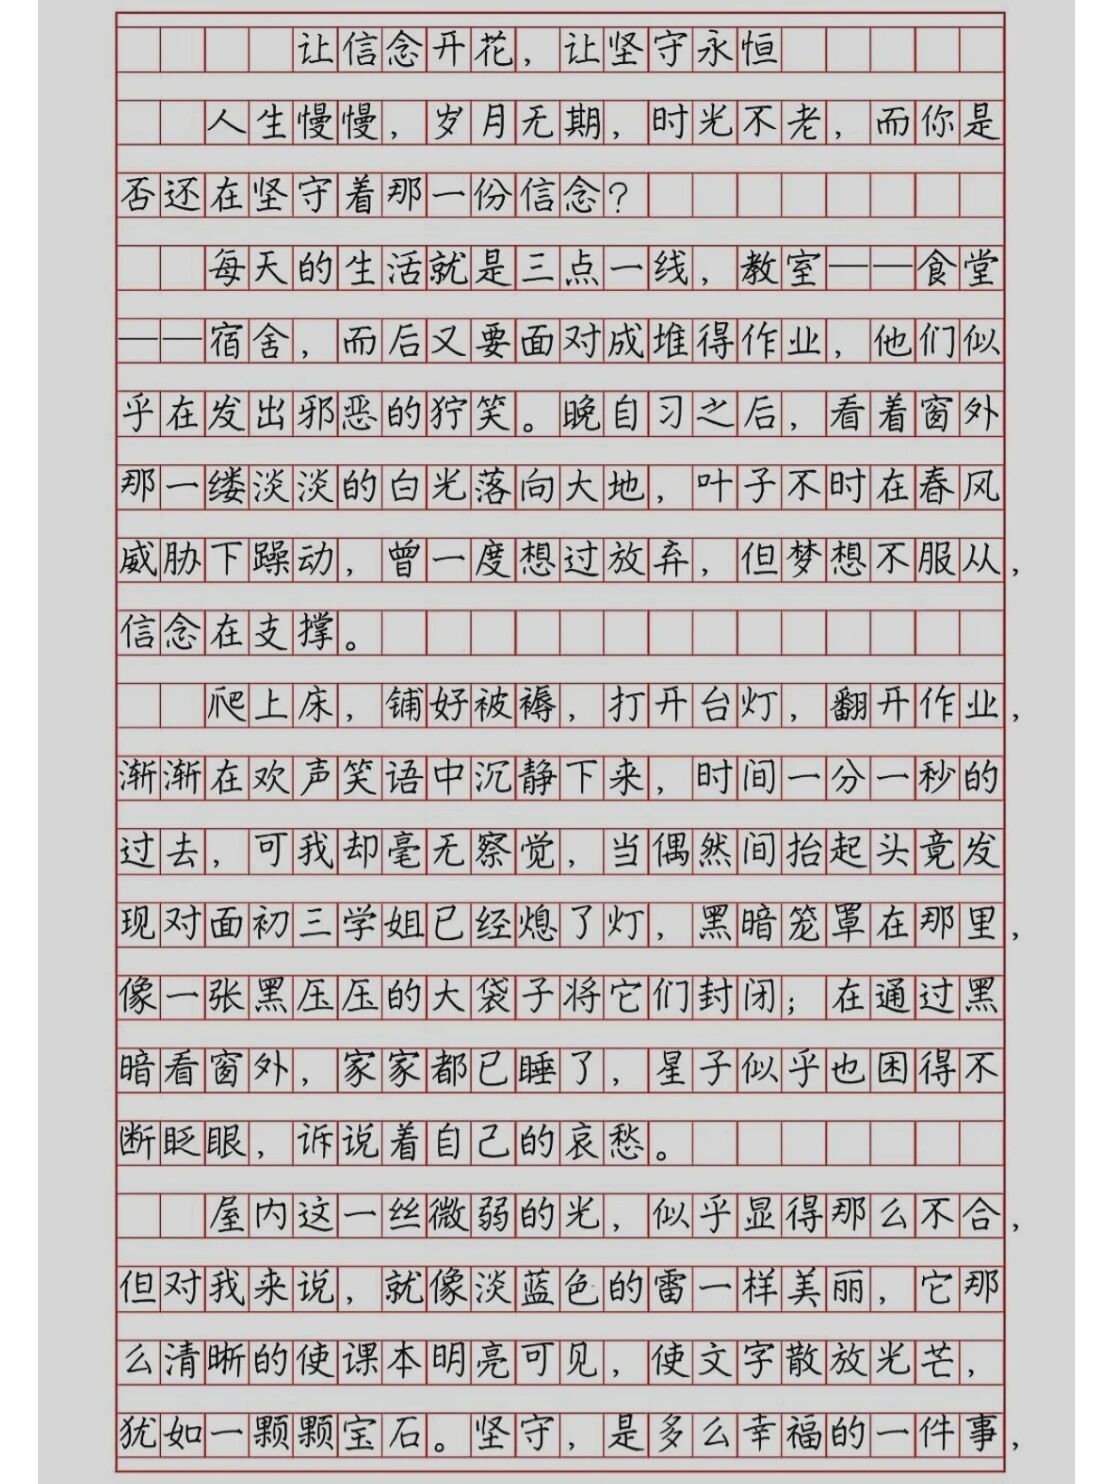 让信念开花，让坚守永恒
人生慢慢，岁月无期，时光不老，而你是
否还在坚守着那一份信念？
每天的生活就是三点一线，教室——食堂
——宿舍，而后又要面对成堆得作业，他们似
乎在发出邪恶的狞笑。晚自习之后，看着窗外
那一缕淡淡的白光落向大地，叶子不时在春风
威胁下躁动，曾一度想过放弃，但梦想不服从，
信念在支撑。
爬上床，铺好被褥，打开台灯，翻开作业，
渐渐在欢声笑语中沉静下来，时间一分一秒的
过去，可我却毫无察觉，当偶然间抬起头竟发
现对面初三学姐已经熄了灯，黑暗笼罩在那里，
像一张黑压压的大袋子将它们封闭；在通过黑
暗看窗外，家家都已睡了，星子似乎也困得不
断眨眼，诉说着自己的哀愁。
屋内这一丝微弱的光，似乎显得那么不合，
但对我来说，就像淡蓝色的雷一样美丽，它那
么清晰的使课本明亮可见，使文字散放光芒，
犹如一颗颗宝石。坚守，是多么幸福的一件事，